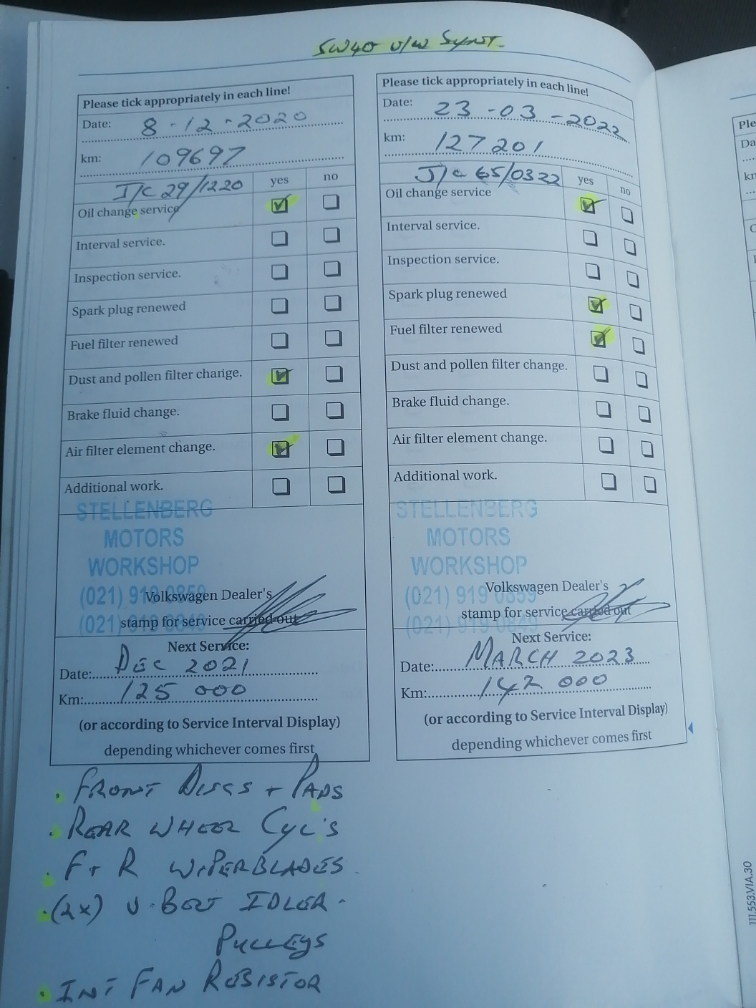 5W40 V/W SYNT.
Please tick appropriately in each line!
Date: 8-12-2020
km: 109697
I/C 29/1220
yes no
Oil change service
Interval service.
Inspection service.
Spark plug renewed
Fuel filter renewed
Dust and pollen filter change.
Brake fluid change.
Air filter element change.
Additional work.
STELLENBERG
MOTORS
WORKSHOP
(021) 919
Volkswagen Dealer's
(021)
stamp for service carried out
Next Service:
Date: DEC 2021
Km: 125 000
(or according to Service Interval Display)
depending whichever comes first
• FRONT DISCS + PADS
• REAR WHEEL CYL'S
• F + R WIPERBLADES
• (2x) V-BELT IDLER -
PULLEYS
• INT FAN RESISTOR
Please tick appropriately in each line!
Date: 23-03-2022
km: 127201
J/C 65/0322
yes no
Oil change service
Interval service.
Inspection service.
Spark plug renewed
Fuel filter renewed
Dust and pollen filter change.
Brake fluid change.
Air filter element change.
Additional work.
STELLENBERG
MOTORS
WORKSHOP
(021) 919
Volkswagen Dealer's
(021)
stamp for service carried out
Next Service:
Date: MARCH 2023
Km: 142 000
(or according to Service Interval Display)
depending whichever comes first
Ple
Da
111.553.VIA.30